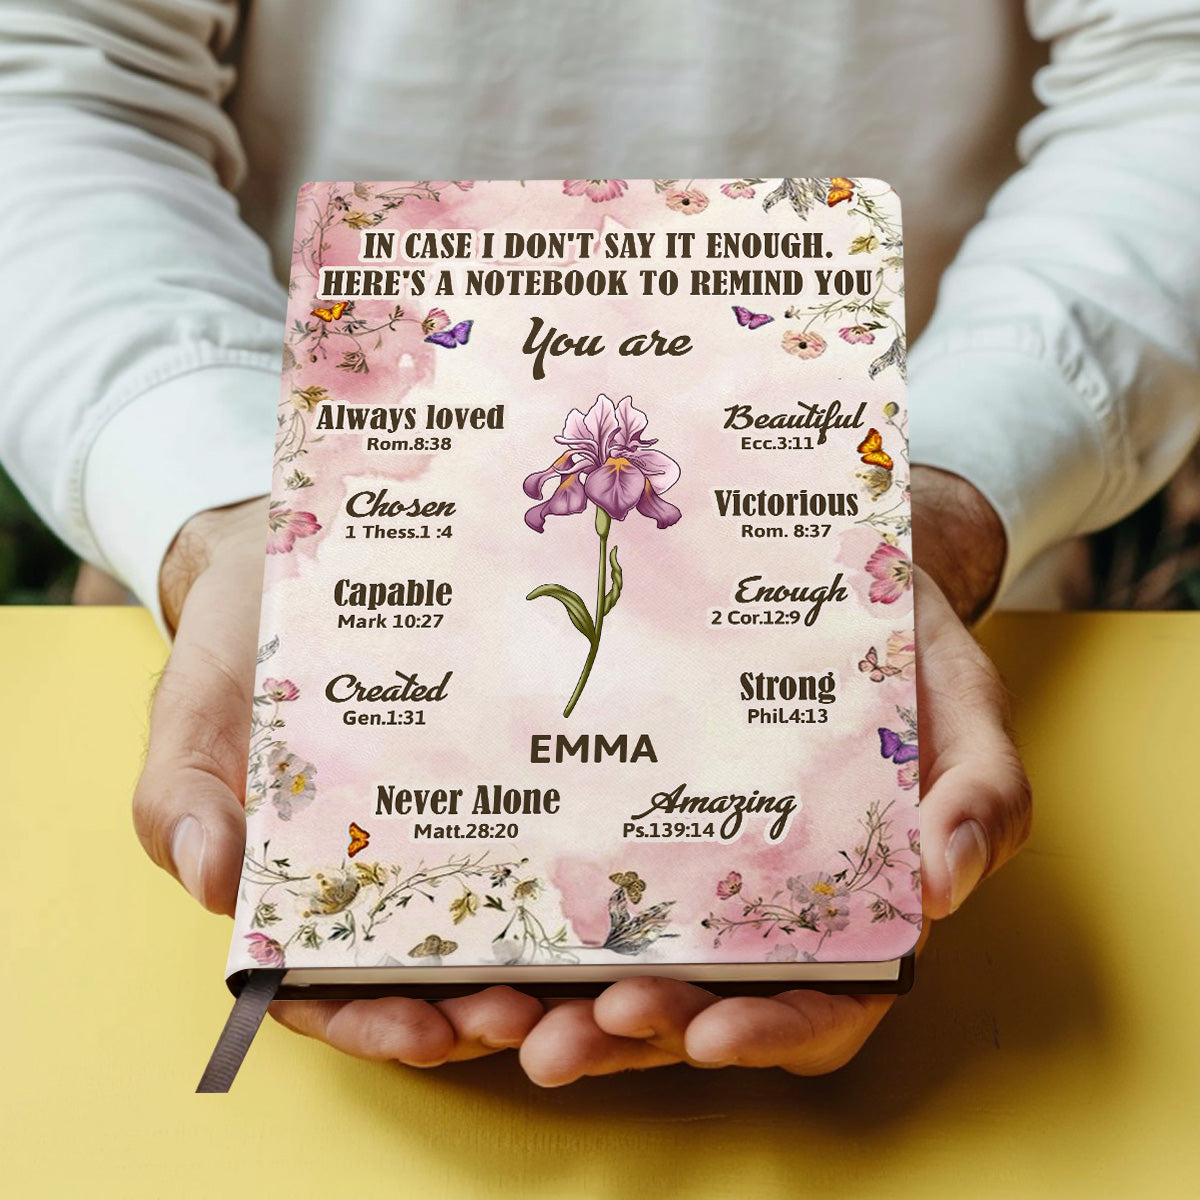 IN CASE I DON'T SAY IT ENOUGH.
HERE'S A NOTEBOOK TO REMIND YOU
You are
Always loved
Rom.8:38
Beautiful
Ecc.3:11
Chosen
1 Thess.1 :4
Victorious
Rom. 8:37
Capable
Mark 10:27
Enough
2 Cor.12:9
Created
Gen.1:31
Strong
Phil.4:13
EMMA
Never Alone
Matt.28:20
Amazing
Ps.139:14